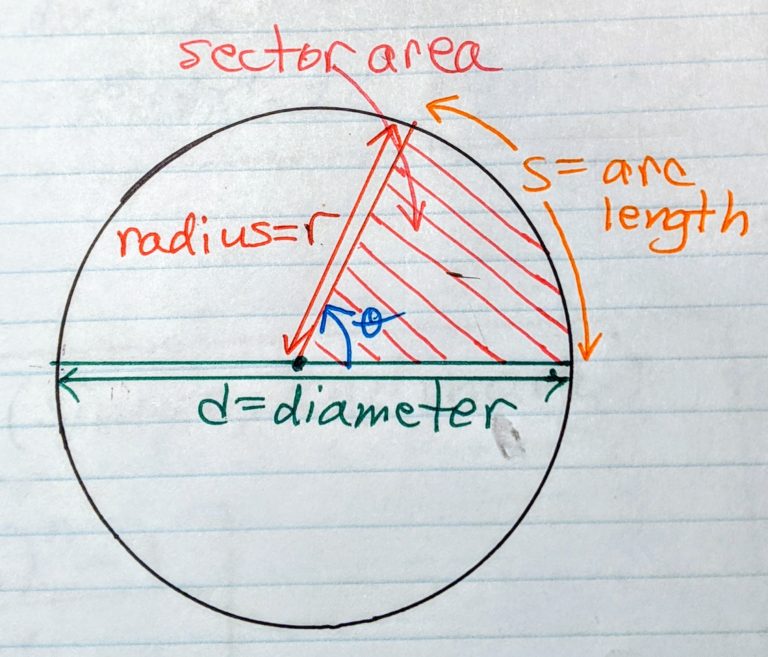 sector area
s = arc
length
radius = r
θ
d = diameter